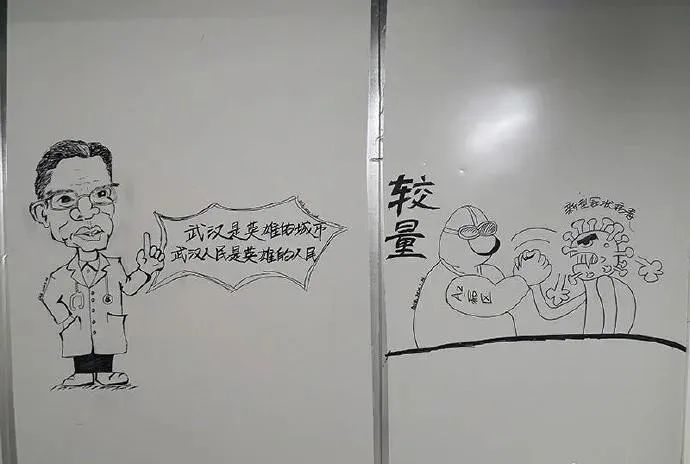 武汉是英雄的城市
武汉人民是英雄的人民
较量
新型冠状病毒
A2
病区